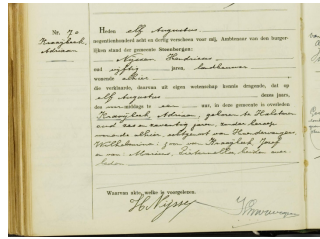 Nr. 70
Kraaijkerk,
Adriaan
Heden elf Augustus
negentienhonderd acht en dertig verscheen voor mij, Ambtenaar van den burger-
lijken stand der gemeente Steenbergen:
Nijssen Hendricus
oud vijftig jaren, landbouwer
wonende alhier
die verklaarde, daarvan uit eigen wetenschap kennis dragende, dat op
elf Augustus dezes jaars,
des middags te een uur, in deze gemeente is overleden
Kraaijkerk Adriaan, geboren te Halsteren
oud zes en zeventig jaren, zonder beroep
wonende alhier, echtgenoot van
Wilhelmina; zoon van Kraaijkerk Josef
en van beiden over-
leden
Waarvan akte, welke is voorgelezen.
H. Nijssen